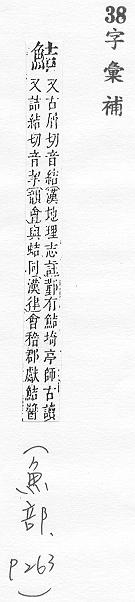 38字彙補
鮚
又古屑切音結漢地理志註鄞有鮚埼亭師古讀
又詰結切音挈韻會與蛣同漢律會稽郡獻鮚醬
(魚部、p263)